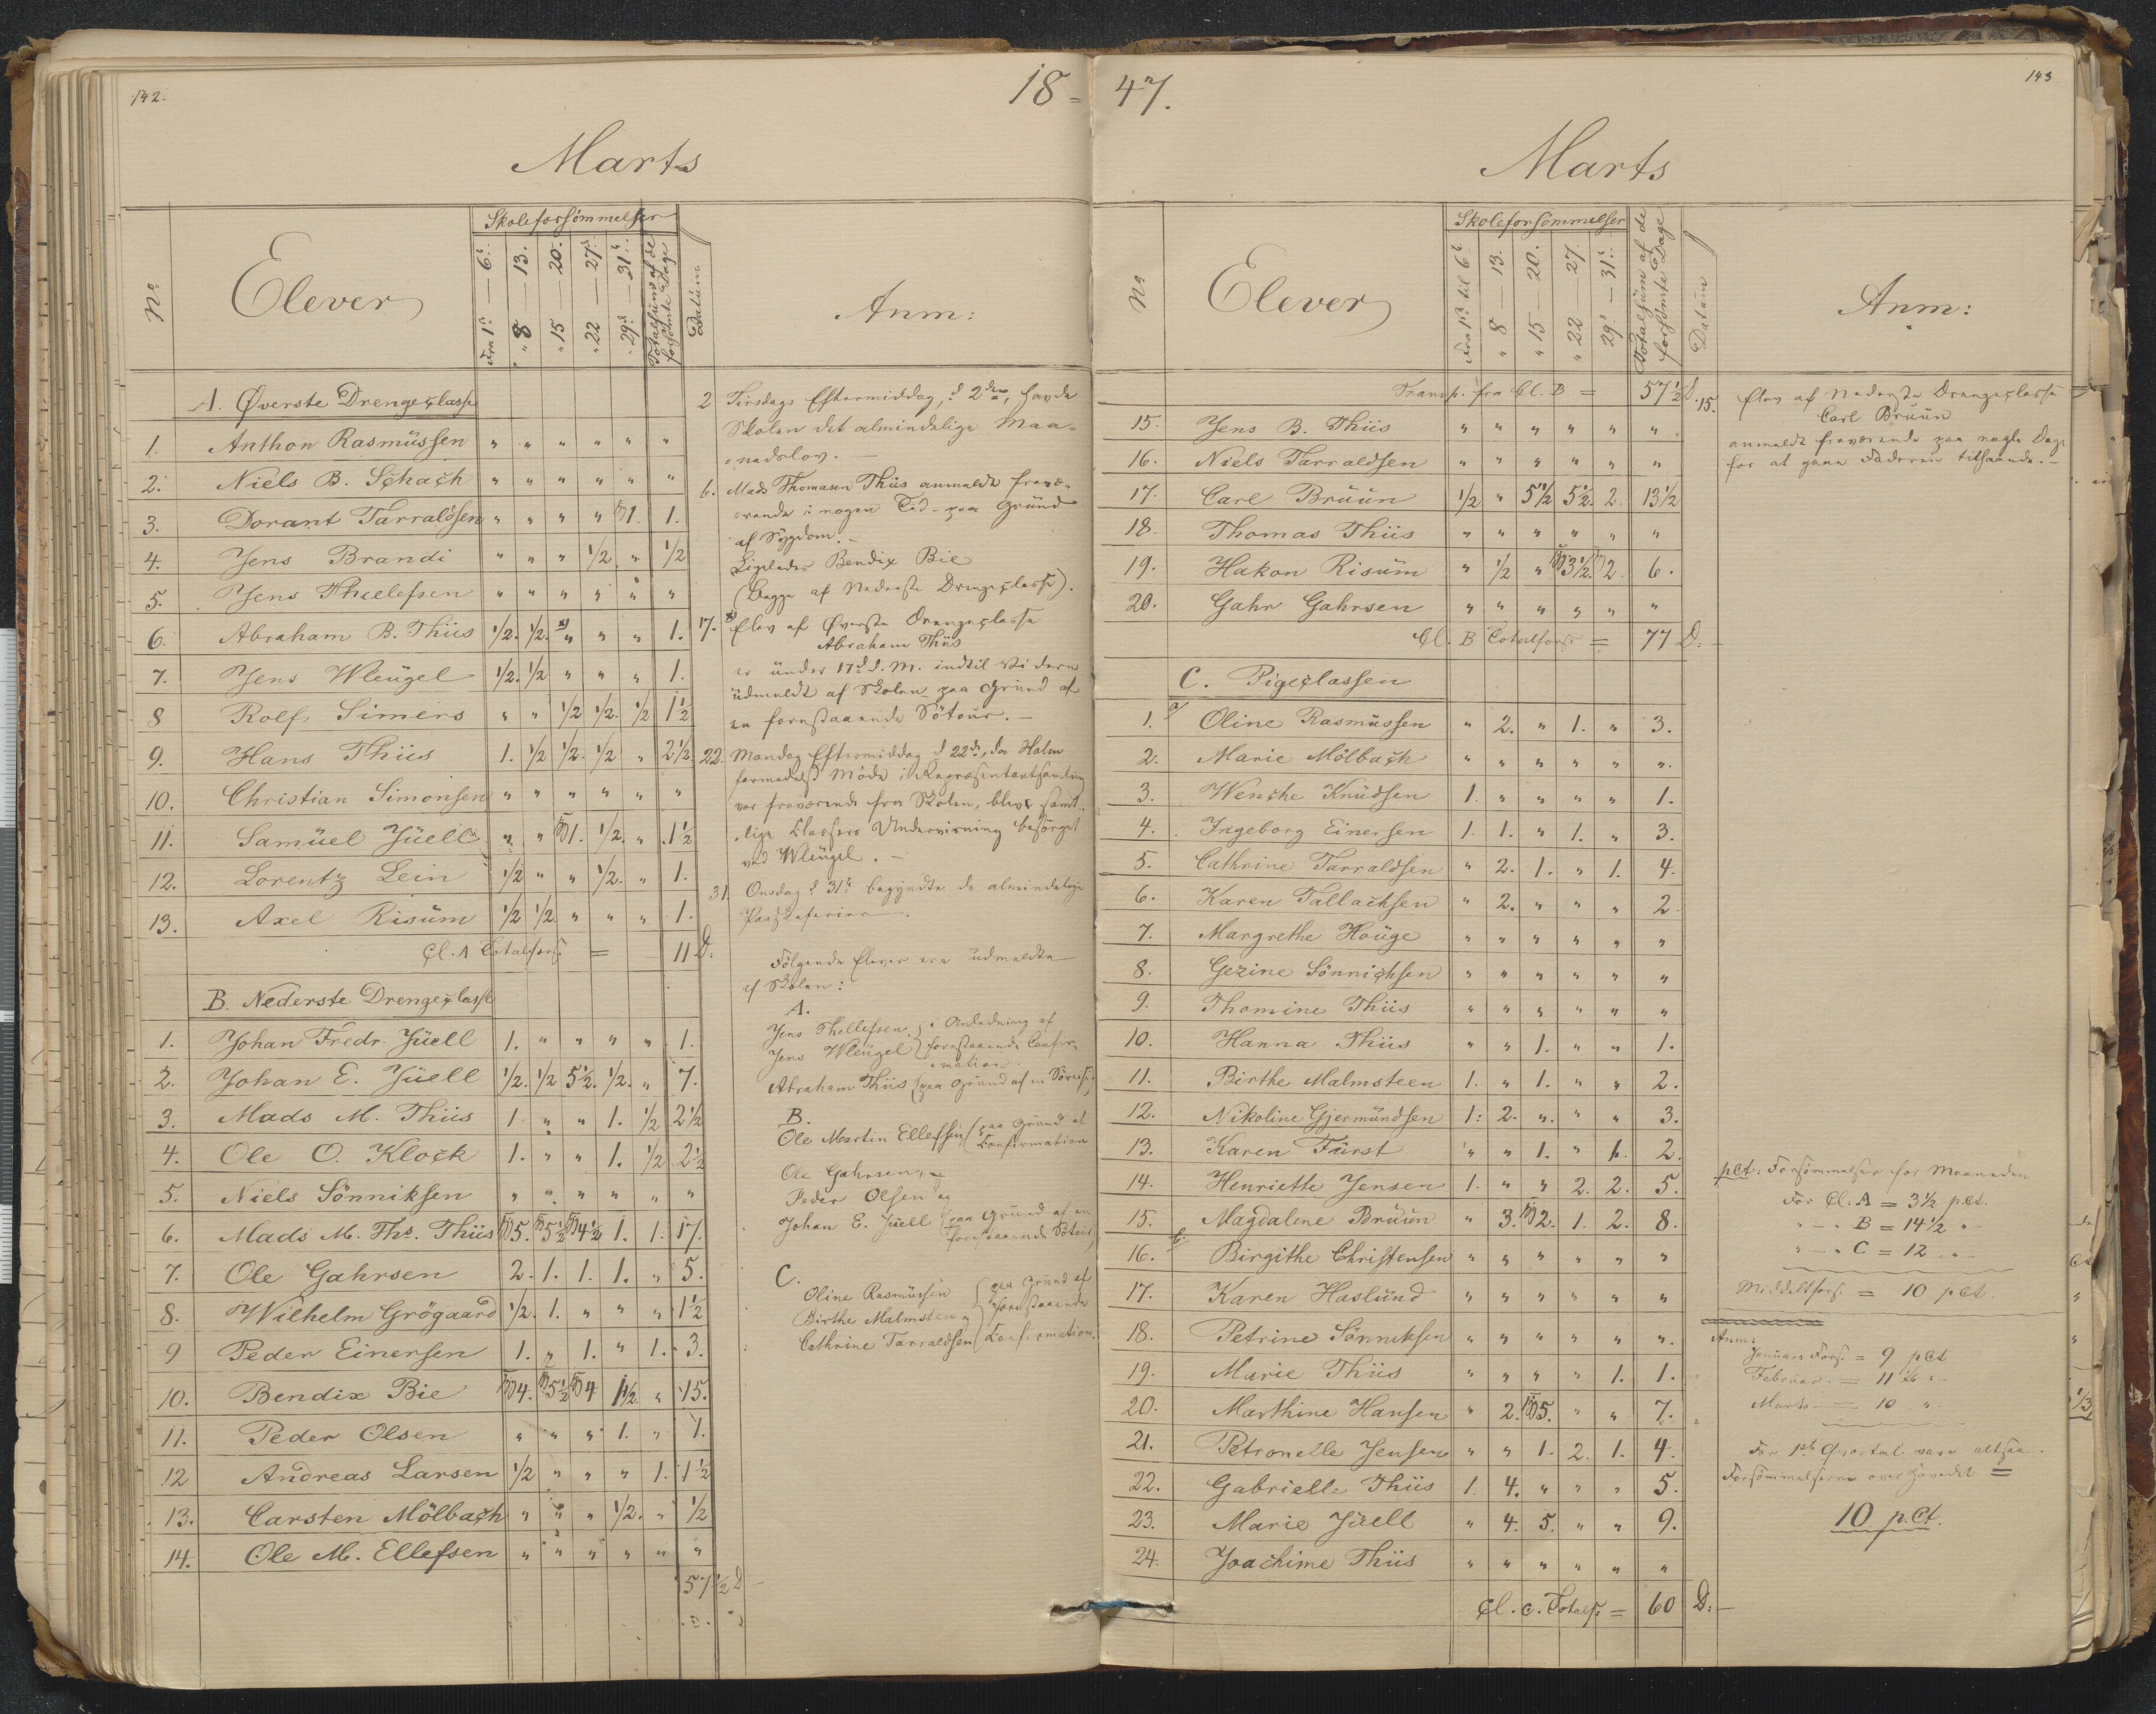 142.
18 =
Marts
No
Elever
Skoleforsömmelser
Fra 1ste — 6te
" 8 — 13.
" 15 — 20.
" 22 — 27de
" 29de — 31te
Totalsum af de forsömte Dage
Datum
Anm:
A. Øverste Drengeclasse
1. Anthon Rasmüssen " " " " " "
2. Niels B. Schach " " " " " "
3. Dorant Tarraldsen " " " " 1. 1.
4. Jens Brandi " " " 1/2 " 1/2
5. Jens Thellefsen " " " " " "
6. Abraham B. Thiis 1/2. 1/2. " " " 1.
7. Jens Wleügel 1/2. 1/2 " " " 1.
8 Rolf Simers " " 1/2 1/2. 1/2 1 1/2
9. Hans Thiis 1. 1/2 1/2. 1/2 " 2 1/2
10. Christian Simonsen " " " " " "
11. Samüel Jüell " " 1. 1/2. " 1 1/2
12. Lorentz Lein 1/2 " " 1/2. " 1.
13. Axel Risüm 1/2 1/2 " " " 1.
Cl. A Totalfors: = 11 D.
B. Nederste Drengeclasse
1. Johan Fredr. Jüell 1. " " " " 1.
2. Johan E. Jüell 1/2. 1/2 5 1/2. 1/2. " 7.
3. Mads M. Thiis 1. " " 1. 1/2 2 1/2
4. Ole O. Klock 1. " " 1. 1/2 2 1/2
5. Niels Sönniksen " " " " " "
6. Mads M. Ths. Thiis 5. 5 1/2 4 1/2 1. 1. 17.
7. Ole Gahrsen 2. 1. 1. 1. " 5.
8. Wilhelm Grögaard 1/2. 1. " " " 1 1/2
9 Peder Einersen 1. " 1. " 1. 3.
10. Bendix Bie 4. 5 1/2 4 1 1/2. " 15.
11. Peder Olsen " " " 1. " 1.
12 Andreas Larsen 1/2 " " " 1. 1 1/2
13. Carsten Mölbach " " " 1/2. " 1/2
14. Ole M. Ellefsen " " " " " "
57 1/2 D
2 Tirsdags Eftermiddag, d. 2den, havde
Skolen det almindelige Maa-
nedslov. —
6. Mads Thomasen Thiis anmeldt fravæ-
rende i nogen Tid paa Grund
af Sygdom. —
Ligeledes Bendix Bie
(Begge af Nederste Drengeclasse).
17. Elev af Øverste Drengeclasse
Abraham Thiis
er under 17de d. M. indtil videre
üdmeldt af Skolen paa Grund af
en forestaaende Sötour. —
22. Mandag Eftermiddag d. 22de, da Holm
formedelst Möde i Repræsentantsamling
var fraværende fra Skolen, blev samt-
lige Classers Undervisning besörget
ved Wleügel. —
31. Onsdag d. 31te begyndte de almindelige
Paaskeferier.
Fölgende Elever ere üdmeldte
af Skolen:
A.
Jens Thellefsen, i Anledning af
Jens Wleügel forestaaende Confir-
mation
Abraham Thiis (paa Grund af en
B.
Ole Martin Ellefsen, (paa Grund af
Confirmation
Ole Gahrsen, og
Peder Olsen og
Johan E. Jüell (paa Grund af en
forestaaende Sötour)
C.
Oline Rasmüssen paa Grund af
Birthe Malmsten og forestaaende
Cathrine Tarraldsen Confirmation.
47.
143
Marts
No
Elever
Skoleforsömmelser
Fra 1ste til 6te
" 8 — 13.
" 15 — 20.
" 22 27.
29de — 31te
Totalsüm af de forsömte Dage
Datum
Anm:
Transp. fra Cl. B = 57 1/2 D.
15. Jens B. Thiis " " " " " "
16. Niels Tarraldsen " " " " " "
17. Carl Brüün 1/2 " 5 1/2 5 1/2. 2. 13 1/2
18. Thomas Thiis " " " " " "
19. Hakon Risüm " 1/2 " 3 1/2. 2. 6.
20. Gahr Gahrsen " " " " " "
Cl. B Totalfors: = 77 D.
C. Pigeclassen
1. Oline Rasmüssen " 2. " 1. " 3.
2. Marie Mölbach " " " " " ".
3. Wenche Knüdsen 1. " " " " 1.
4. Ingeborg Einersen 1. 1. " 1. " 3.
5. Cathrine Tarraldsen " 2. 1. " 1. 4.
6. Karen Tallachsen " 2. " " " 2
7. Margrethe Houge " " " " " "
8. Gezine Sönnichsen " " " " " "
9. Thomine Thiis " " " " " "
10. Hanna Thiis " " 1. " " 1.
11. Birthe Malmsteen 1. " 1. " " 2.
12. Nikoline Gjermündsen 1. 2. " " " 3.
13. Karen Fürst " " 1. " 1. 2.
14. Henriette Jensen 1. " " 2. 2. 5.
15. Magdalene Brüün " 3. 2. 1. 2. 8.
16. Birgithe Christensen " " " " " "
17. Karen Haslünd " " " " " "
18. Petrine Sönniksen " " " " " ".
19. Marie Thiis " " " " 1. 1.
20. Marthine Hansen " 2. 5. " " 7.
21. Petronelle Jensen " " 1. 2. 1. 4.
22. Gabrielle Thiis 1. 4. " " " 5.
23. Marie Jüell " 4. 5. " " 9.
24. Joachime Thiis " " " " " "
Cl. C. Totalf: = 60 D:
15. Elev af Nederste Drengeclasse
Carl Brüün
anmeldt fraværende paa nogle Dage
for at gaae Faderen tilhaande. —
pCt: Forsömmelser for Maaneden
For Cl. A = 3 1/2 p.Ct.
" — " B = 14 1/2 " -
" — " C = 12 " -
Middeltfors. = 10 pCt.
Anm:
Januar Fors. = 9 pCt
Februar = 11 "
Marts — = 10 "
For 1ste Qvartal vare altsaa
Forsömmelserne overhovedet =
10 p.Ct.